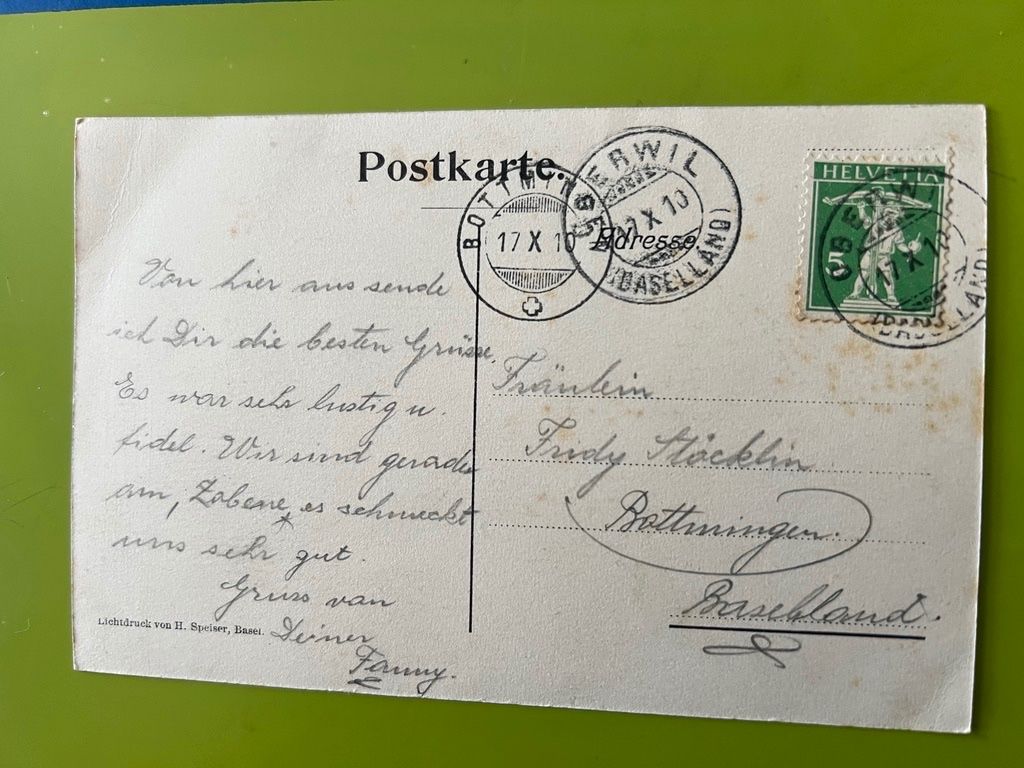 Postkarte.
BOTTMINGEN
17 X 10
OBERWIL
17 X 10
(BASELLAND)
HELVETIA
5
OBERWIL
17 X 10
(BASELLAND)
Adresse
Von hier aus sende
ich Dir die besten Grüsse.
Es war sehr lustig u.
fidel. Wir sind gerade
am „Zabene", es schmeckt
uns sehr gut.
Gruss von
Deiner
Fanny.
Fräulein
Fridy Stöcklin
Bottmingen.
Baselland.
Lichtdruck von H. Speiser, Basel.